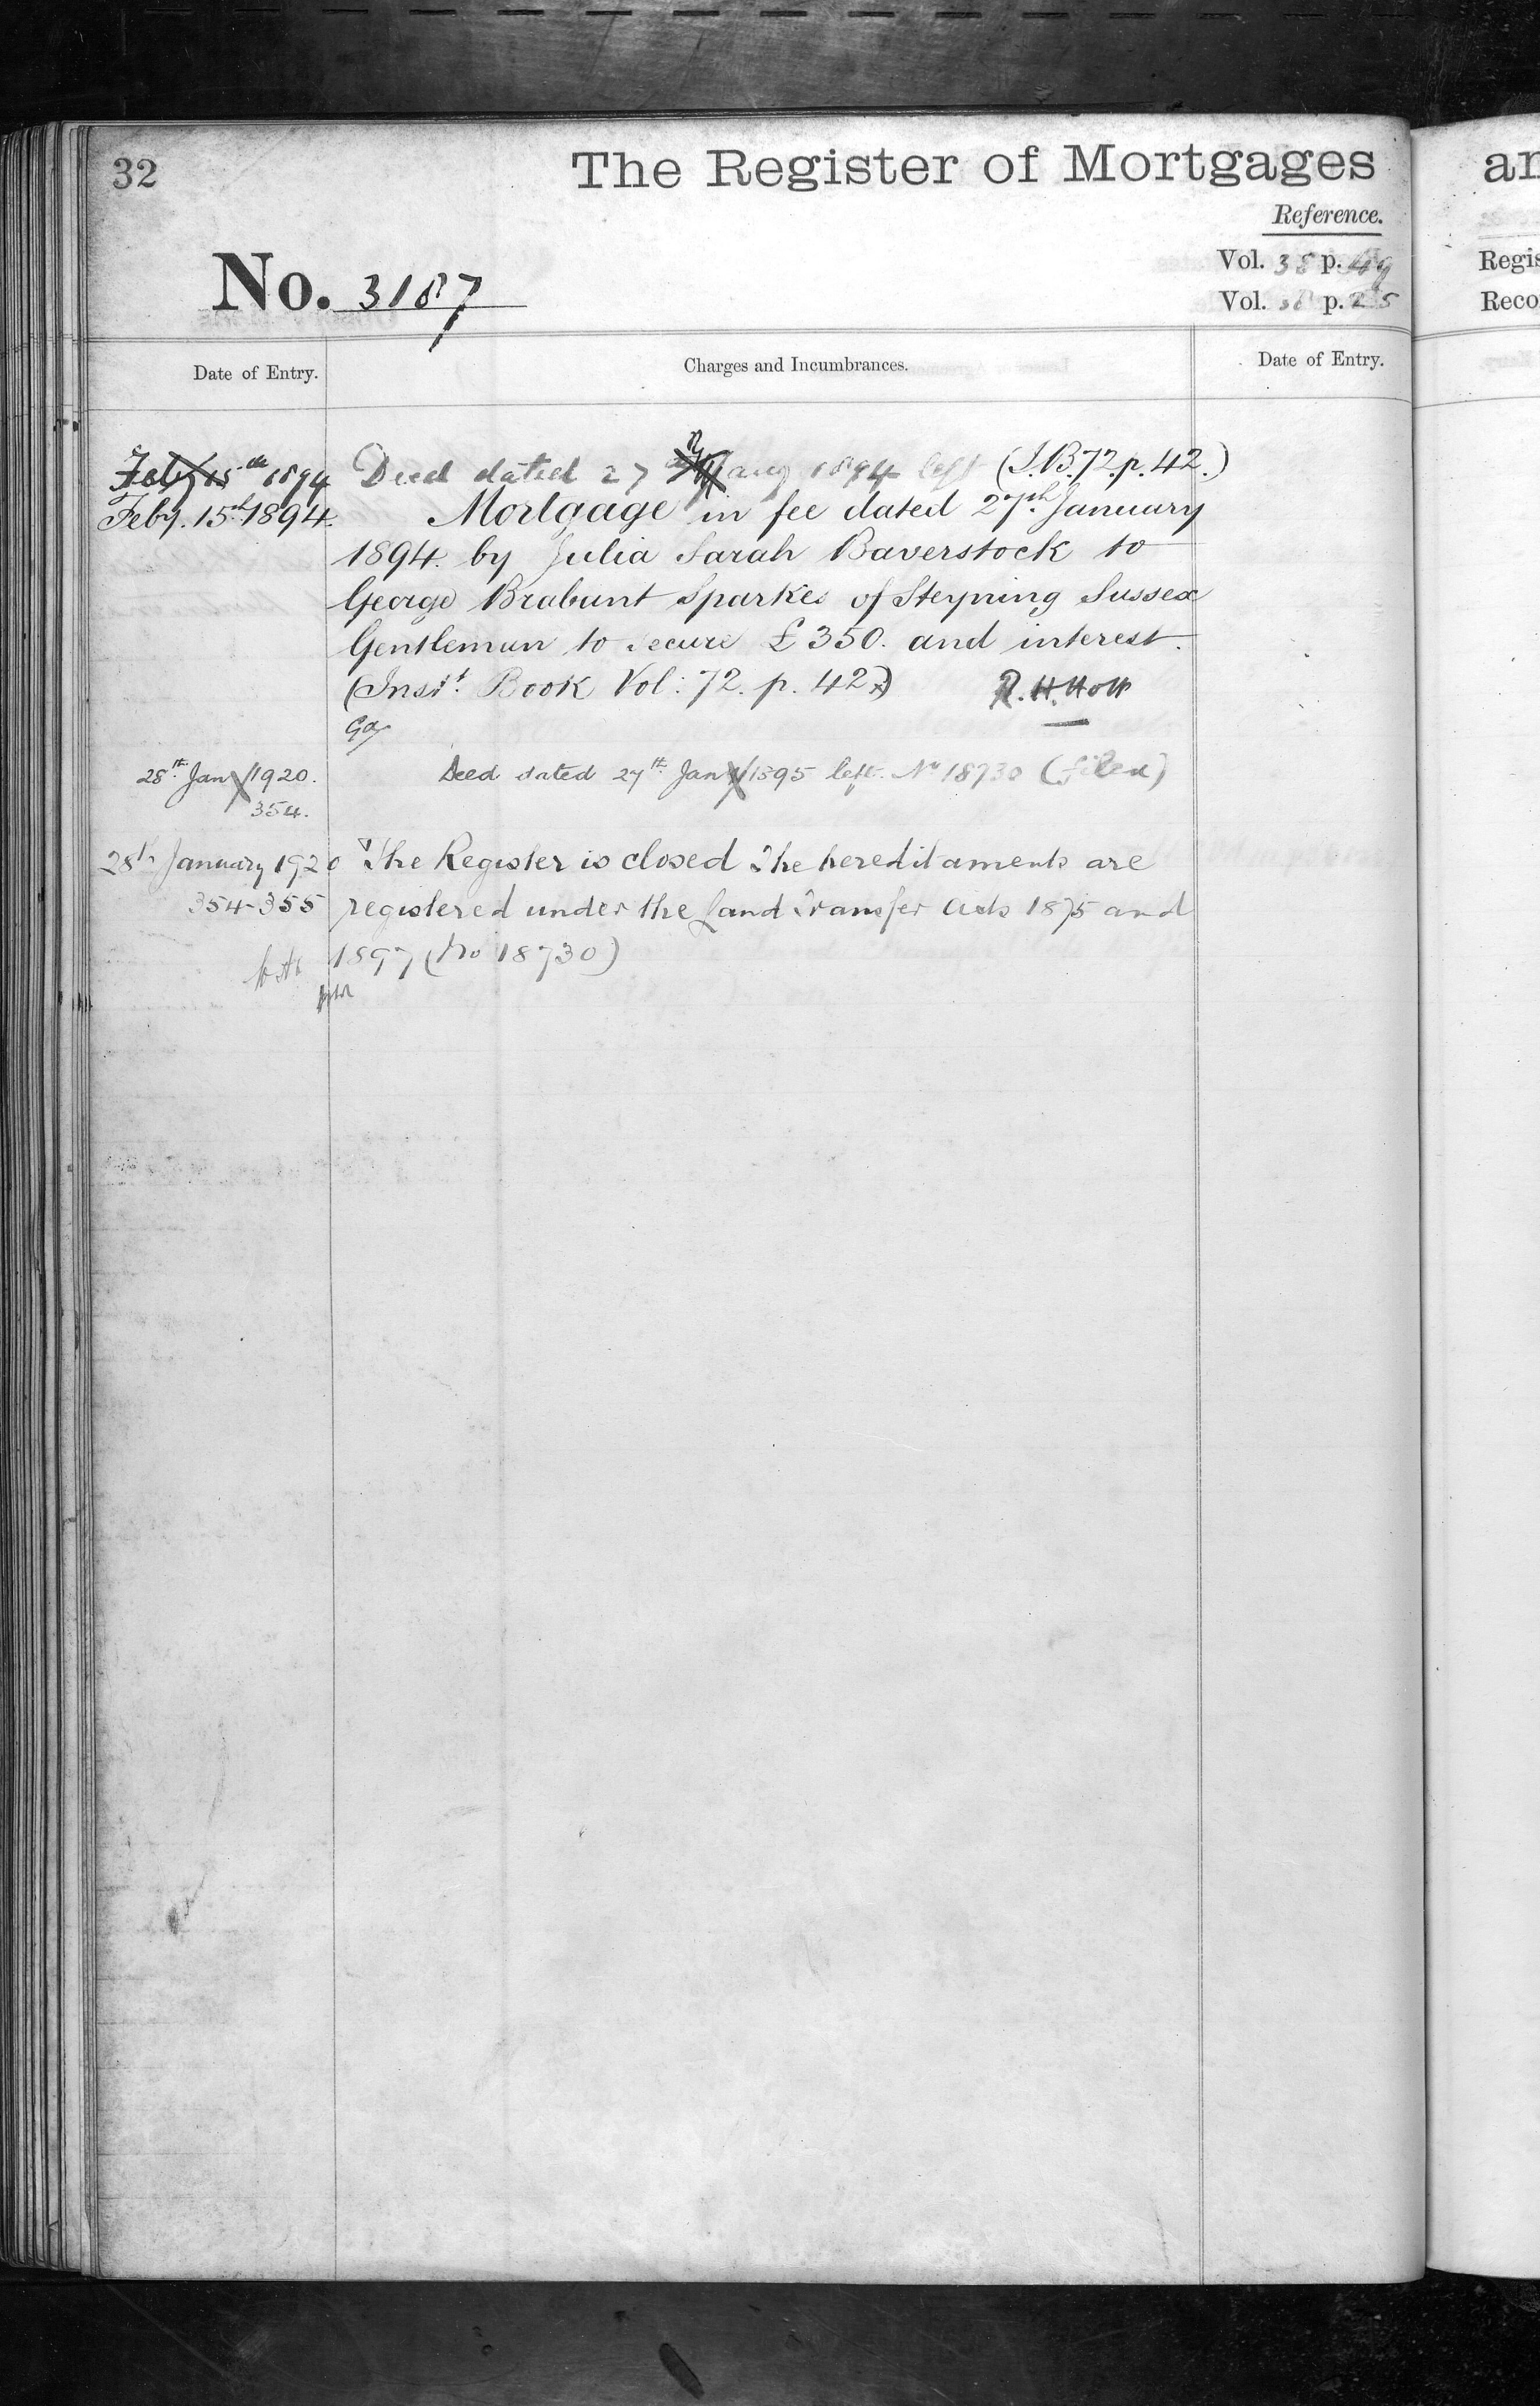 32
The Register of Mortgages
Reference.
No. 3187
Vol. 38 p. 49
Vol. 38 p. 25
Date of Entry.
Charges and Incumbrances.
Date of Entry.
Feby 15th 1894
Deed dated 27 1894 left (I.B.72.p.42.)
Feby. 15th 1894.
Mortgage in fee dated 27th January
1894. by Julia Sarah Baverstock to
George Brabant Sparkes of Steyning Sussex
Gentleman to secure £350. and interest.
(Inst. Book Vol: 72. p. 42.)
R.H.Holt
28th Jany 1920.
354.
Deed dated 27th Jany 1895 left No 18730 (filed)
28th January 1920
354-355
The Register is closed The hereditaments are
registered under the Land Transfer Acts 1875 and
1897 (No 18730)
an
Regis
Reco